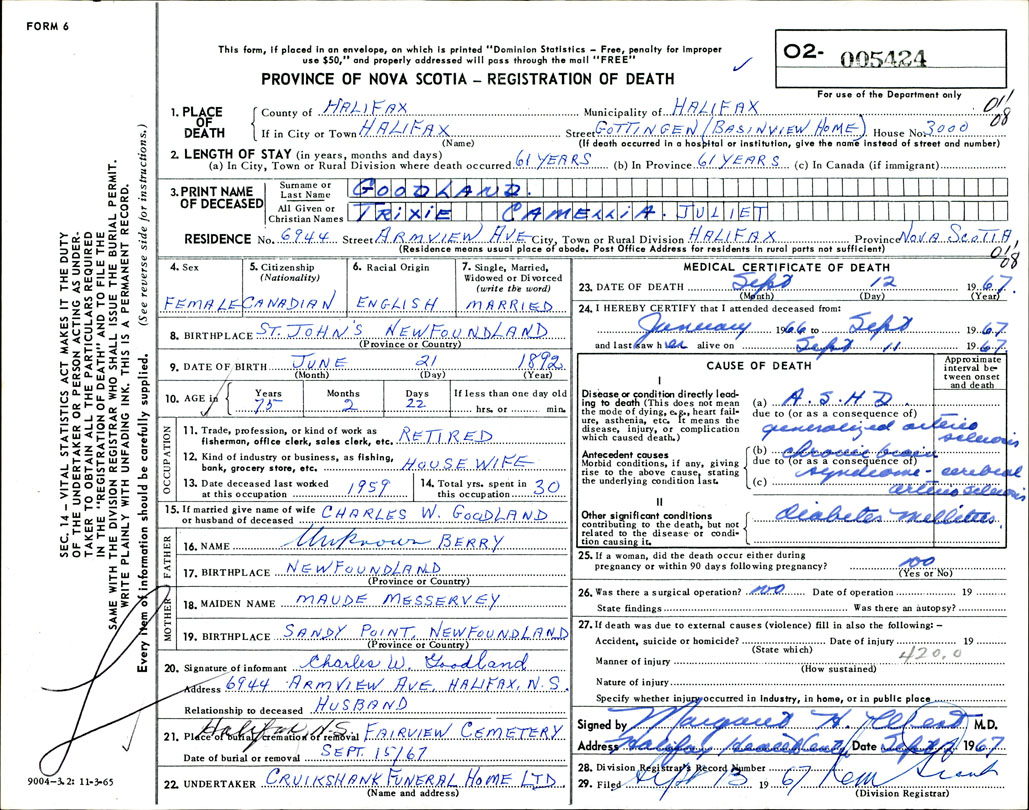 FORM 6
This form, if placed in an envelope, on which is printed "Dominion Statistics – Free, penalty for improper
use $50," and properly addressed will pass through the mail "FREE"
PROVINCE OF NOVA SCOTIA – REGISTRATION OF DEATH
O2- 005424
For use of the Department only
SEC. 14 – VITAL STATISTICS ACT MAKES IT THE DUTY
OF THE UNDERTAKER OR PERSON ACTING AS UNDER-
TAKER TO OBTAIN ALL THE PARTICULARS REQUIRED
IN THE "REGISTRATION OF DEATH" AND TO FILE THE
SAME WITH THE DIVISION REGISTRAR WHO SHALL ISSUE THE BURIAL PERMIT.
WRITE PLAINLY WITH UNFADING INK. THIS IS A PERMANENT RECORD.
Every item of information should be carefully supplied. (See reverse side for instructions.)
1. PLACE OF DEATH
County of HALIFAX Municipality of HALIFAX
011/08
If in City or Town HALIFAX Street GOTTINGEN (BASINVIEW HOME) House No. 3000
(Name) (If death occurred in a hospital or institution, give the name instead of street and number)
2. LENGTH OF STAY (in years, months and days)
(a) In City, Town or Rural Division where death occurred 61 YEARS (b) In Province 61 YEARS (c) In Canada (if immigrant)
3. PRINT NAME OF DECEASED
Surname or Last Name GOODLAND.
All Given or Christian Names TRIXIE CAMELLIA. JULIET
RESIDENCE No. 6944 Street ARMVIEW AVE City, Town or Rural Division HALIFAX Province NOVA SCOTIA,
(Residence means usual place of abode. Post Office Address for residents in rural parts not sufficient)
011/08
4. Sex FEMALE
5. Citizenship (Nationality) CANADIAN
6. Racial Origin ENGLISH
7. Single, Married, Widowed or Divorced (write the word) MARRIED
8. BIRTHPLACE ST. JOHN'S NEWFOUNDLAND
(Province or Country)
9. DATE OF BIRTH JUNE 21 1892
(Month) (Day) (Year)
10. AGE in Years 75 Months 2 Days 22 If less than one day old
hrs. or min.
OCCUPATION
11. Trade, profession, or kind of work as
fisherman, office clerk, sales clerk, etc. RETIRED
12. Kind of industry or business, as fishing,
bank, grocery store, etc. HOUSEWIFE
13. Date deceased last worked
at this occupation 1959
14. Total yrs. spent in
this occupation 30
15. If married give name of wife
or husband of deceased CHARLES W. GOODLAND
FATHER
16. NAME Unknown BERRY
17. BIRTHPLACE NEWFOUNDLAND
(Province or Country)
MOTHER
18. MAIDEN NAME MAUDE MESSERVEY
19. BIRTHPLACE SANDY POINT, NEWFOUNDLAND
(Province or Country)
20. Signature of informant Charles W. Goodland
Address 6944 ARMVIEW AVE, HALIFAX, N.S.
Relationship to deceased HUSBAND
21. Place of burial, cremation or removal Halifax N.S. FAIRVIEW CEMETERY
Date of burial or removal SEPT. 15/67
22. UNDERTAKER CRUIKSHANK FUNERAL HOME LTD
(Name and address)
9004-3.2: 11-3-65
MEDICAL CERTIFICATE OF DEATH
23. DATE OF DEATH Sept 12 1967.
(Month) (Day) (Year)
24. I HEREBY CERTIFY that I attended deceased from:
January 1966 to Sept 1967
and last saw her alive on Sept 11 1967.
CAUSE OF DEATH
Approximate interval between onset and death
I
Disease or condition directly leading to death (This does not mean the mode of dying, e.g., heart failure, asthenia, etc. It means the disease, injury, or complication which caused death.)
(a) A.S.H.D.
due to (or as a consequence of)
generalized arteriosclerosis
Antecedent causes
Morbid conditions, if any, giving rise to the above cause, stating the underlying condition last.
(b) chronic brain
due to (or as a consequence of)
syndrome - cerebral
(c) arteriosclerosis
II
Other significant conditions
contributing to the death, but not related to the disease or condition causing it.
diabetes mellitus.
25. If a woman, did the death occur either during
pregnancy or within 90 days following pregnancy? no
(Yes or No)
26. Was there a surgical operation? no Date of operation 19
State findings Was there an autopsy?
27. If death was due to external causes (violence) fill in also the following: –
Accident, suicide or homicide? Date of injury 19
(State which) 420.0
Manner of injury
(How sustained)
Nature of injury
Specify whether injury occurred in industry, in home, or in public place
Signed by Margaret H. M.D.
Address Halifax Date Sept 1967
28. Division Registrar's Record Number
29. Filed Sept 13 1967
(Division Registrar)